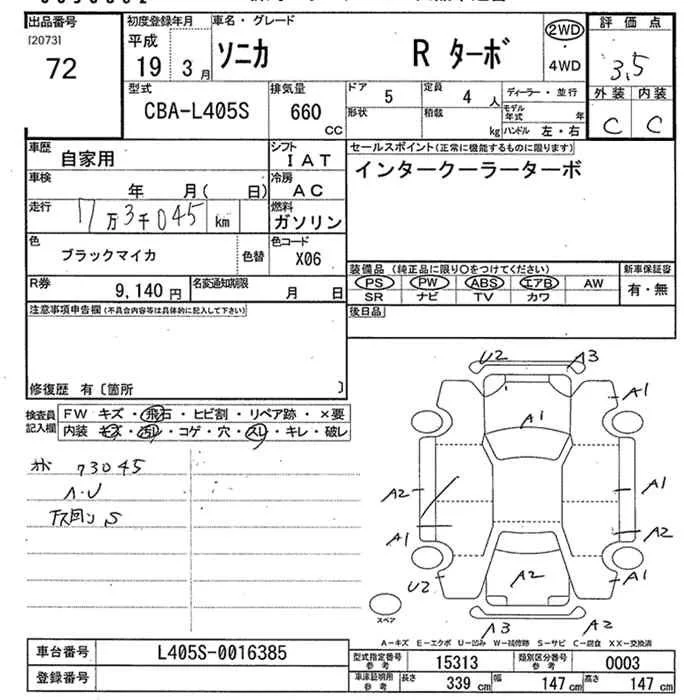 出品番号
[2073]
72
初度登録年月
平成
19 3月
車名・グレード
ソニカ R ターボ
2WD
・
4WD
評価点
3.5
外装 内装
C C
型式
CBA-L405S
排気量
660
CC
ドア 5
形状
定員 4 人
積載 kg
ディーラー・並行
モデル年式 年
ハンドル 左・右
車歴 自家用
シフト IAT
車検 年 月( 日)
冷房 AC
走行 7万3千045 km
燃料 ガソリン
色 ブラックマイカ 色替
色コード X06
R券 9,140円
名変通知期限 月 日
セールスポイント(正常に機能するものに限ります)
インタークーラーターボ
装備品 (純正品に限り○をつけてください)
PS PW ABS エアB AW
SR ナビ TV カワ
新車保証書
有・無
後日品
注意事項申告欄(不具合内容等は具体的に記入して下さい)
修復歴 有〔箇所 〕
検査員記入欄
FW キズ・飛石・ヒビ割・リペア跡・×要
内装 キズ・汚レ・コゲ・穴・スレ・キレ・破レ
73045
S
U2 A3
A1 A1
A2 A1
A1 A2
U2 A2 A1
A3 A2
スペア
A-キズ E-エクボ U-凹み W-補修跡 S-サビ C-腐食 XX-交換済
車台番号 L405S-0016385
登録番号
型式指定番号 参考 15313
類別区分番号 参考 0003
車庫証明用 参考
長さ 339 cm
幅 147 cm
高さ 147 cm